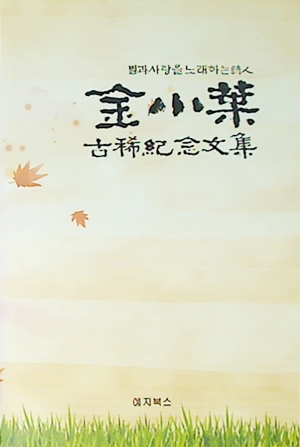 별과 사랑을 노래하는 詩人
金小葉
古稀紀念文集
예지북스